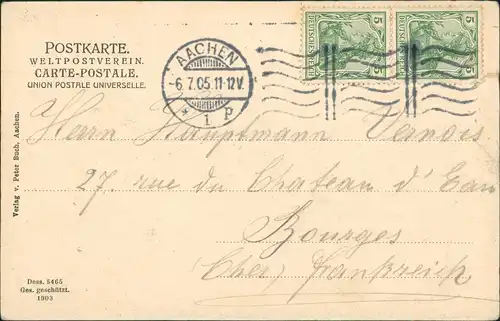 POSTKARTE.
WELTPOSTVEREIN.
CARTE-POSTALE.
UNION POSTALE UNIVERSELLE.
AACHEN
-6.7.05.11-12V.
* 1 P
5 5
5 5
DEUTSCHES REICH
Herrn Hauptmann Vernois
27. rue du Chateau d'Eau
Bourges
(Cher) Frankreich
Verlag v. Peter Buch, Aachen.
Dess. 5465
Ges. geschützt.
1903